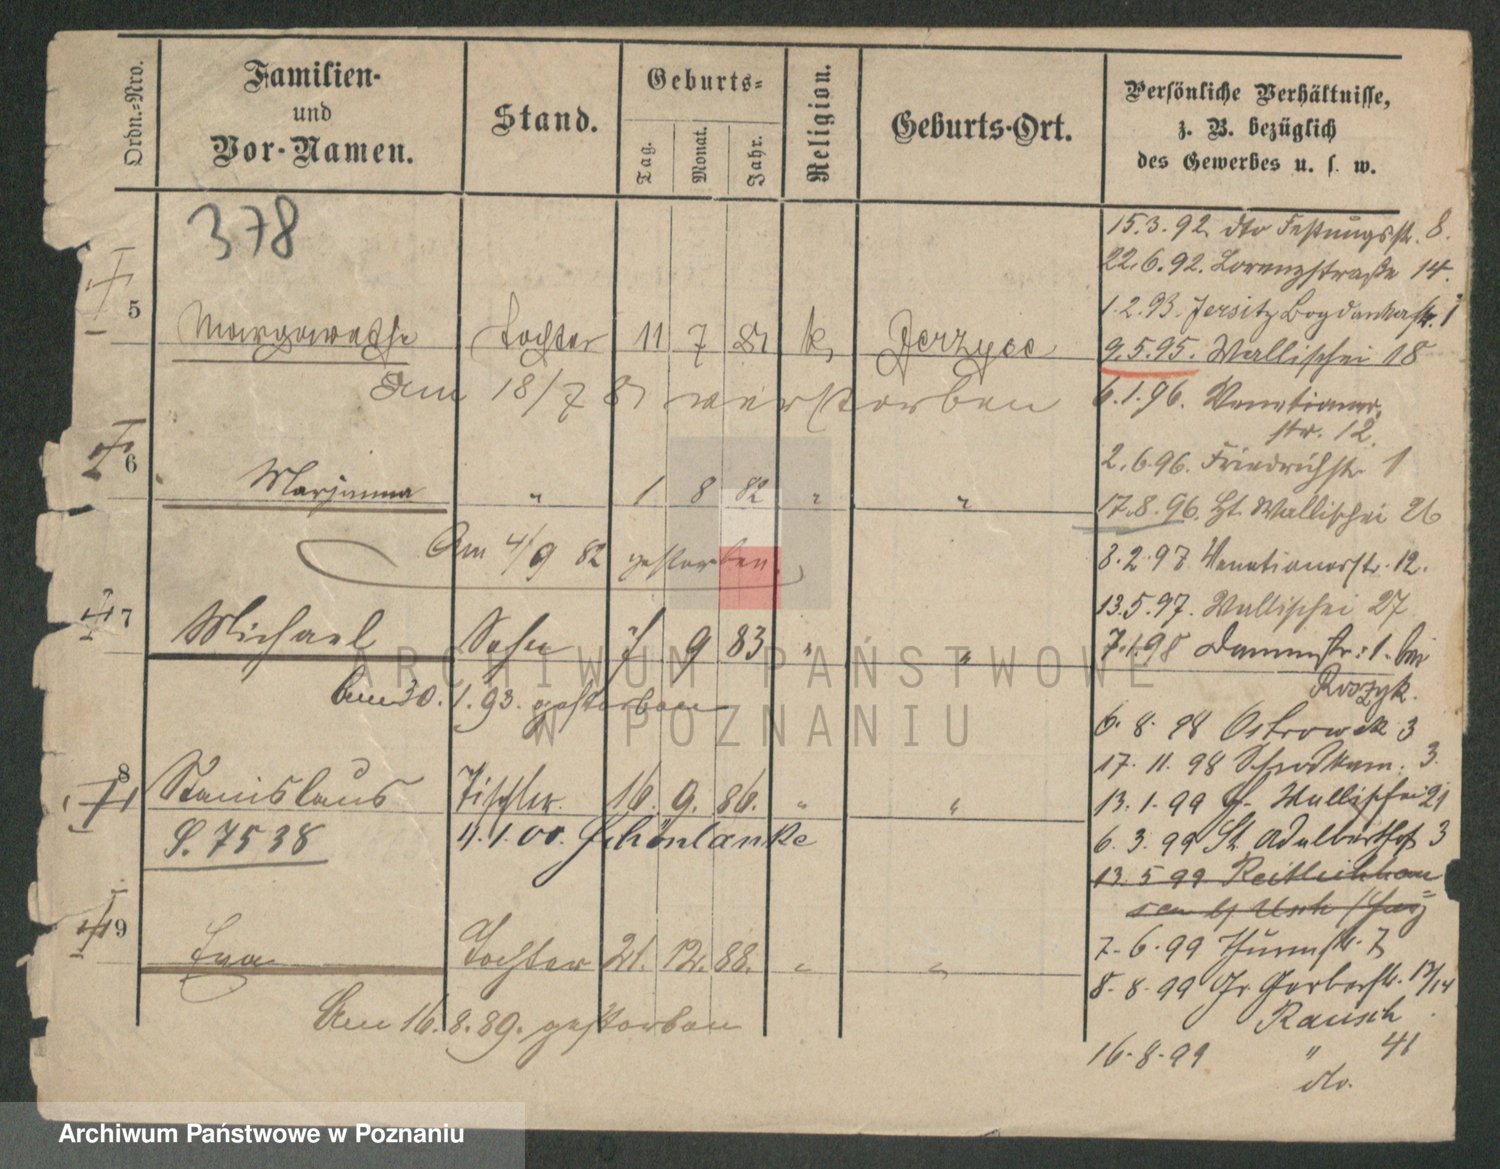 Ordn.-Nro.
Familien-
und
Vor-Namen.
Stand.
Geburts-
Tag.
Monat.
Jahr.
Religion.
Geburts-Ort.
Persönliche Verhältnisse,
z. B. bezüglich
des Gewerbes u. s. w.
378
15.3.92 dto Festungsstr. 8.
22.6.92. Lorenzstraße 14.
1.2.93. Jersitz Bogdankastr. 1
5 Margarethe Tochter 11 7 81 k, Jerzyce
9.5.95. Wallischei 18
am 18/7 81 verstorben
6.1.96. Venetianer
str. 12.
2.6.96. Friedrichstr. 1
6 Marjanna " 1 8 82 " "
17.8.96. Wallischei 26
Am 4/9 82 gestorben
8.2.97 Venetianerstr. 12.
13.5.97. Wallischei 27
7 Michael Sohn 9 83 " "
7.1.98 Dammstr: 1. bei
Roszyk.
am 30.1.93. gestorben
6.8.98 Ostrowek 3
17.11.98 Schrodkam. 3.
8 Stanislaus Tischler. 16. 9. 86. " "
13.1.99 Wallischei 21
S. 7538 4.1.00. Schönlanke
6.3.99 St Adalbertstr 3
13.5.99
7.6.99 Thurmstr. 7
9 Eva Tochter 21. 12. 88. " "
8.8.99 Gr Gerberstr. 13/14
Rausch
Am 16.8.89. gestorben
16.8.99 " 41
dto.
ARCHIWUM PAŃSTWOWE
W POZNANIU
Archiwum Państwowe w Poznaniu